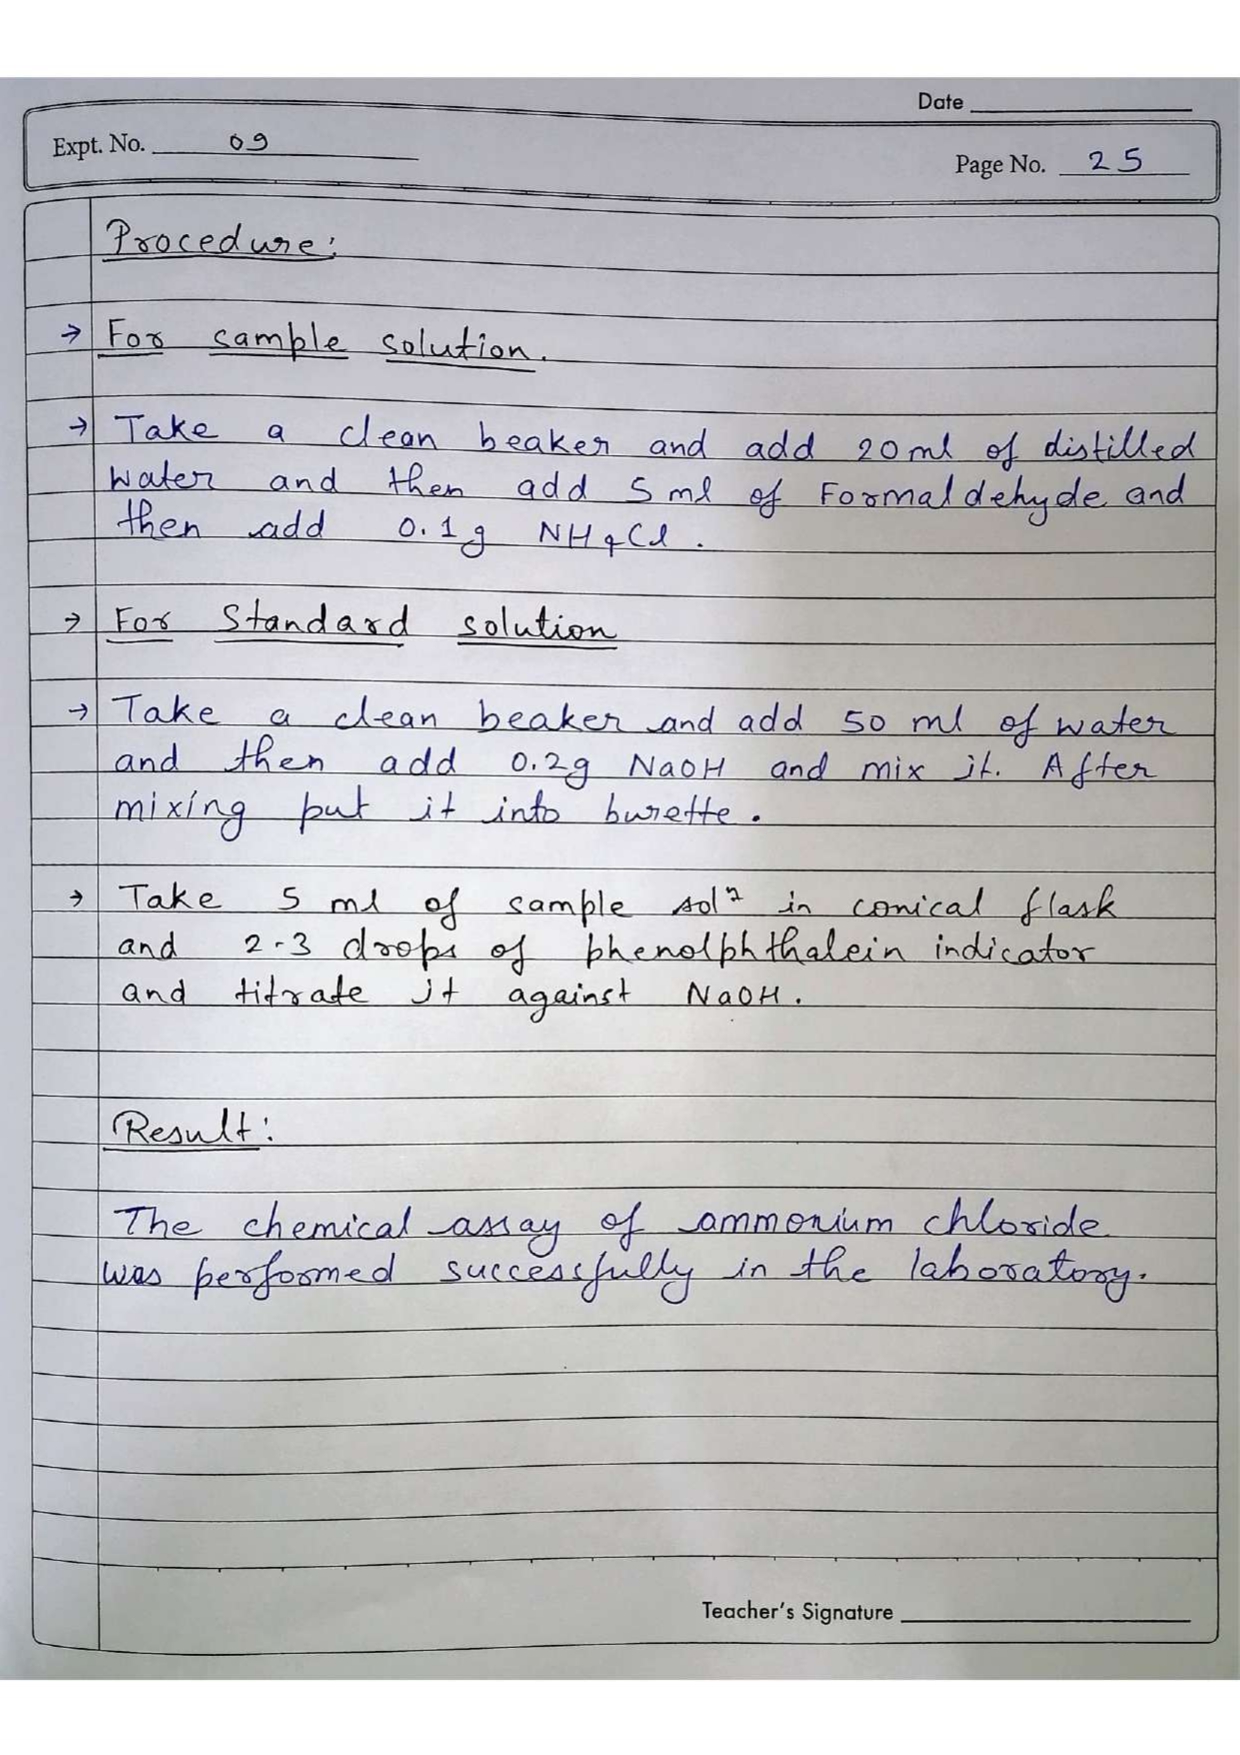 Date
Expt. No. 09
Page No. 25
Procedure:
→ For sample solution.
→ Take a clean beaker and add 20ml of distilled
water and then add 5ml of Formaldehyde and
then add 0.1g NH4Cl.
→ For Standard solution
→ Take a clean beaker and add 50 ml of water
and then add 0.2g NaOH and mix it. After
mixing put it into burette.
→ Take 5 ml of sample solⁿ in conical flask
and 2-3 drops of phenolphthalein indicator
and titrate it against NaOH.
Result:
The chemical assay of ammonium chloride
was performed successfully in the laboratory.
Teacher's Signature